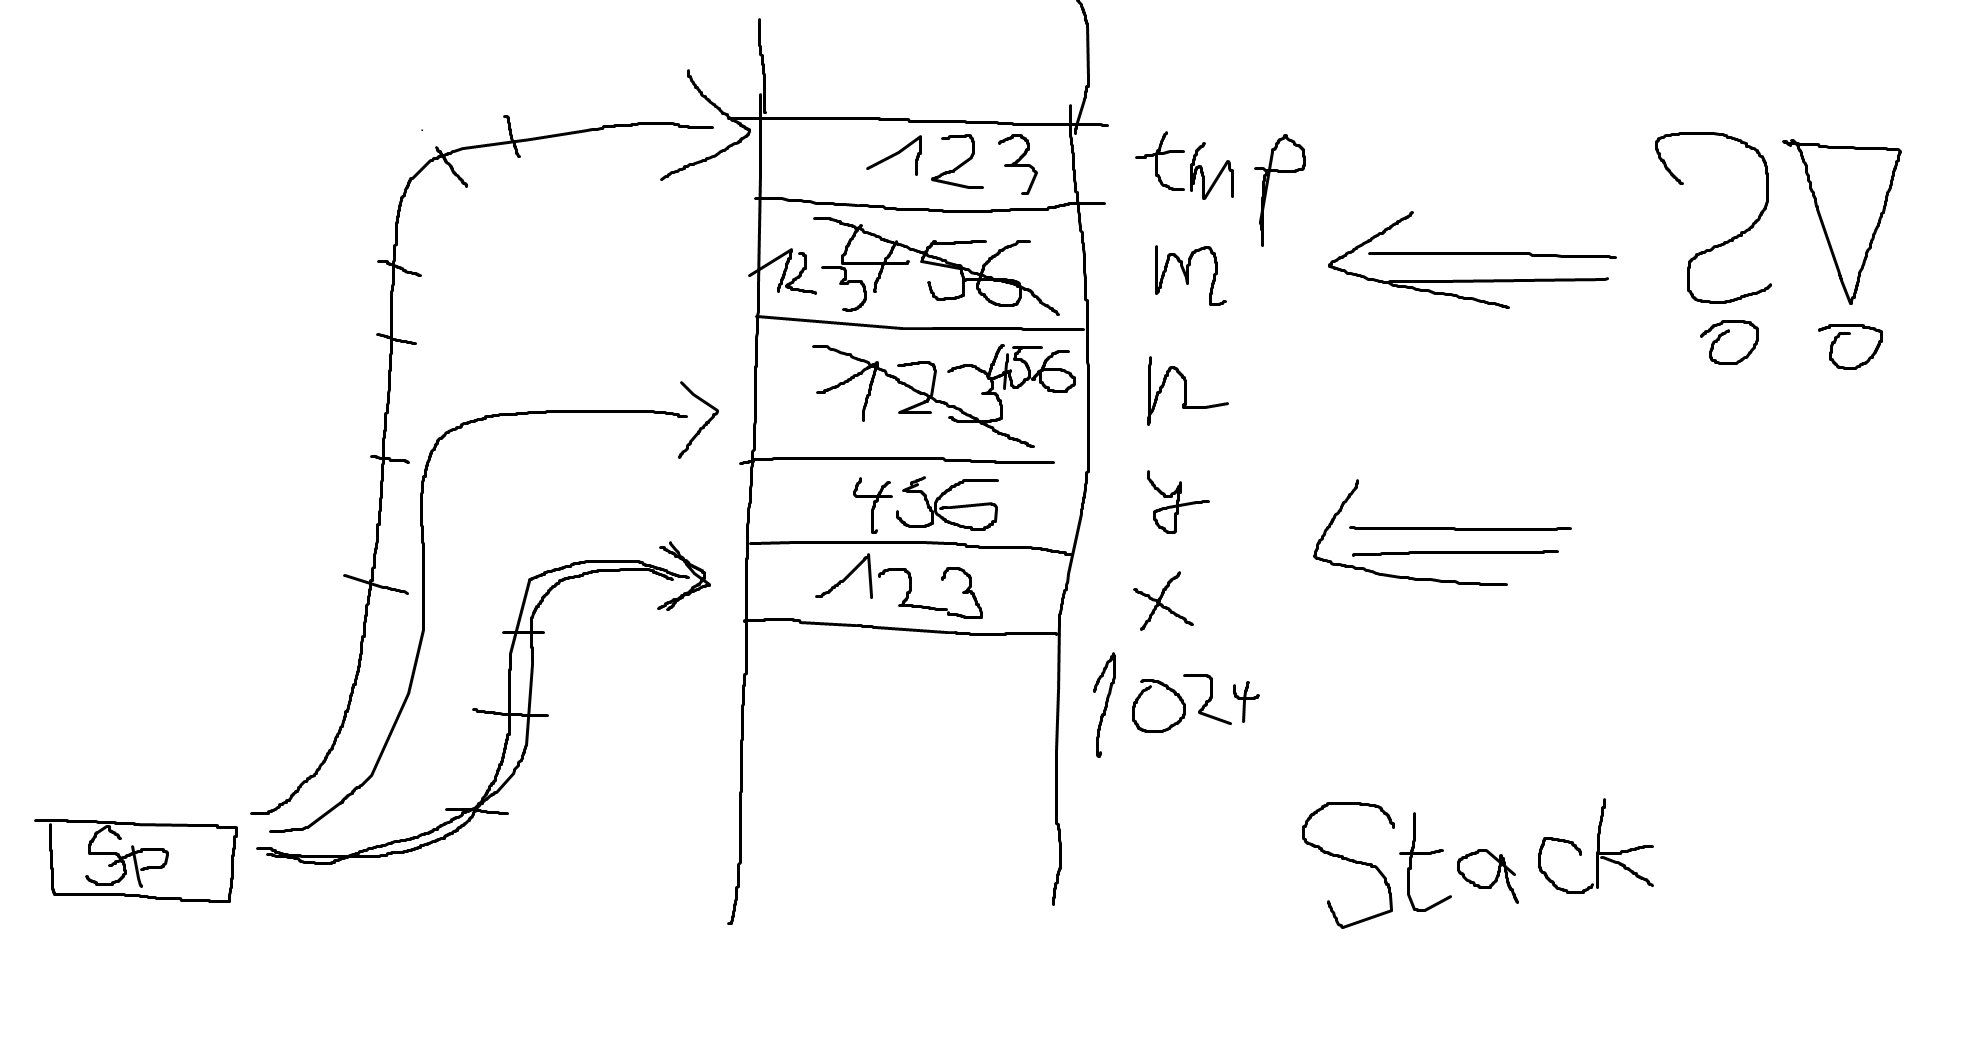 123 tmp
123 456 m ?!
123 456 n
456 y
123 x
1024
SP
Stack